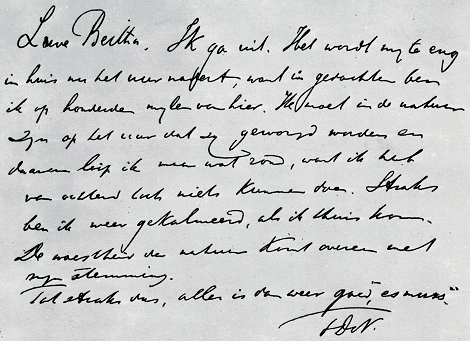 Lieve Bertha. Ik ga uit. Het wordt my te eng
in huis nu het uur nadert, want in gedachten ben
ik op honderden mylen van hier. Ik moet in de natuur
zyn op het uur dat zy gewurgd worden en
daarom loop ik maar wat rond, want ik heb
van ochtend toch niets kunnen doen. Straks
ben ik weer gekalmeerd, als ik thuis kom.
De woestheid der natuur komt overeen met
myn stemming.
Tot straks dus, alles is dan weer goed,